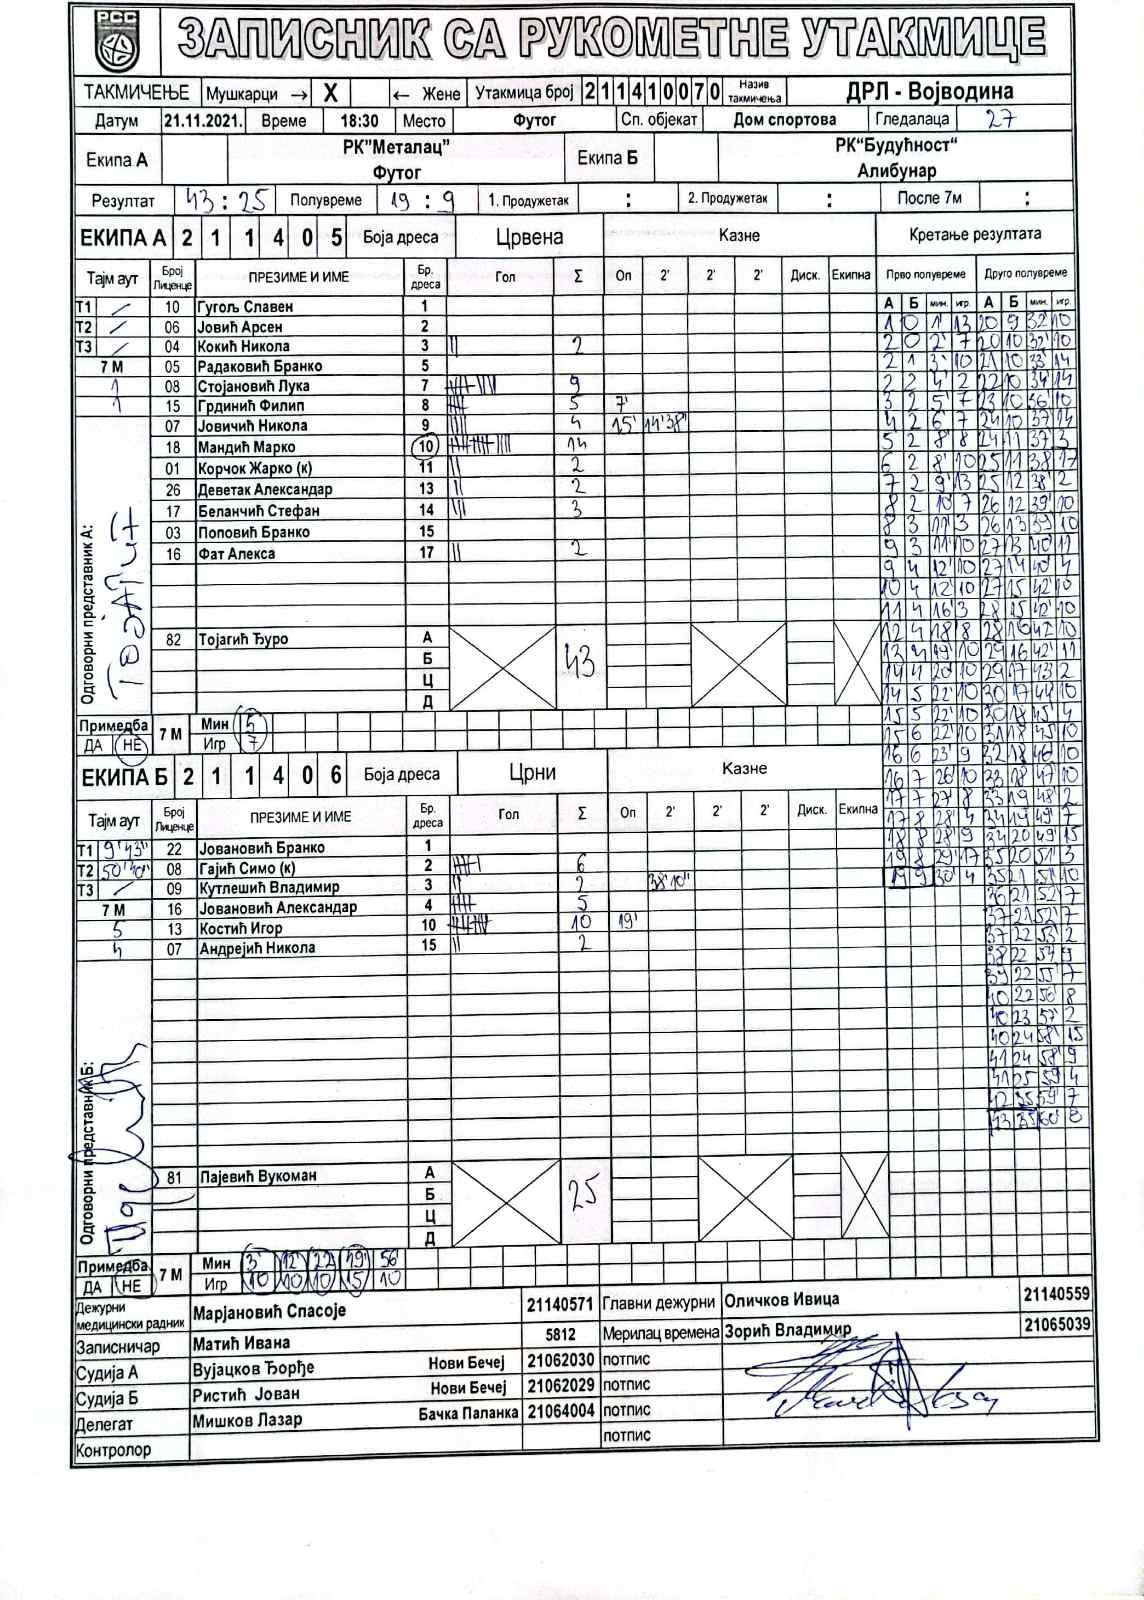 РСС
ЗАПИСНИК СА РУКОМЕТНЕ УТАКМИЦЕ
ТАКМИЧЕЊЕ Мушкарци → X ← Жене Утакмица број 211410070 Назив такмичења ДРЛ - Војводина
Датум 21.11.2021. Време 18:30 Место Футог Сп. објекат Дом спортова Гледалаца 27
Екипа А РК"Металац" Футог Екипа Б РК"Будућност" Алибунар
Резултат 43 : 25 Полувреме 19 : 9 1. Продужетак : 2. Продужетак : После 7м :
ЕКИПА А 2 1 1 4 0 5 Боја дреса Црвена Казне Кретање резултата
Тајм аут Број Лиценце ПРЕЗИМЕ И ИМЕ Бр. дреса Гол Σ Оп 2' 2' 2' Диск. Екипна Прво полувреме Друго полувреме
А Б мин. игр. А Б мин. игр.
Т1 10 Гугољ Славен 1
Т2 06 Јовић Арсен 2
Т3 04 Кокић Никола 3 2
7 М 05 Радаковић Бранко 5
1 08 Стојановић Лука 7 9
1 15 Грдинић Филип 8 5 7'
07 Јовичић Никола 9 4 15' 14' 38'
18 Мандић Марко 10 14
01 Корчок Жарко (к) 11 2
26 Деветак Александар 13 2
17 Беланчић Стефан 14 3
03 Поповић Бранко 15
16 Фат Алекса 17 2
Одговорни представник А:
82 Тојагић Ђуро А
Б
Ц
Д
43
Примедба ДА НЕ 7 М Мин 5
Игр 7
ЕКИПА Б 2 1 1 4 0 6 Боја дреса Црни Казне
Тајм аут Број Лиценце ПРЕЗИМЕ И ИМЕ Бр. дреса Гол Σ Оп 2' 2' 2' Диск. Екипна
Т1 9'43" 22 Јовановић Бранко 1
Т2 08 Гајић Симо (к) 2 6
Т3 09 Кутлешић Владимир 3 2 38'10"
7 М 16 Јовановић Александар 4 5
5 13 Костић Игор 10 10 19'
4 07 Андрејић Никола 15 2
Одговорни представник Б:
81 Пајевић Вукоман А
Б
Ц
Д
25
Примедба ДА НЕ 7 М Мин 3' 12' 22 49' 56'
Игр 10 10 10 15 10
1 0 1' 13 20 9 32' 10
2 0 2' 7 20 10 32' 10
2 1 3' 10 21 10 33' 14
2 2 4' 2 22 10 34' 14
3 2 5' 7 23 10 36' 10
4 2 6' 7 24 10 37' 14
5 2 8' 8 24 11 37' 3
6 2 8' 10 25 11 38' 17
7 2 9' 13 25 12 38' 2
8 2 10' 7 26 12 39' 10
8 3 11' 3 26 13 39' 10
9 3 11' 10 27 13 40' 11
9 4 12' 10 27 14 40' 4
10 4 12' 10 27 15 42' 10
11 4 16' 3 28 15 42' 10
12 4 18' 8 28 16 42' 10
13 4 19' 10 29 16 42' 11
14 4 20' 10 29 17 43' 2
14 5 22' 10 30 17 44' 10
15 5 22' 10 30 18 45' 4
15 6 22' 10 31 18 45' 10
16 6 23' 9 32 18 46' 10
16 7 26' 10 33 18 47' 10
17 7 27' 8 33 19 48' 2
17 8 28' 4 34 19 49' 7
18 8 28' 9 34 20 49' 15
19 8 29' 17 35 20 51' 3
19 9 30' 4 35 21 51' 10
36 21 52' 7
37 21 52' 7
37 22 53' 2
38 22 54' 9
39 22 55' 7
40 22 56' 8
40 23 57' 2
40 24 58' 15
41 24 58' 9
41 25 59' 4
42 25 59' 7
43 25 60' 8
Дежурни медицински радник Марјановић Спасоје 21140571 Главни дежурни Оличков Ивица 21140559
Записничар Матић Ивана 5812 Мерилац времена Зорић Владимир 21065039
Судија А Вујацков Ђорђе Нови Бечеј 21062030 потпис
Судија Б Ристић Јован Нови Бечеј 21062029 потпис
Делегат Мишков Лазар Бачка Паланка 21064004 потпис
Контролор потпис